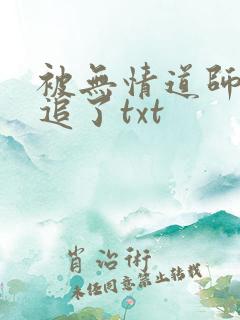 被無情道師
追了txt
肖治術
未经同意禁止转载